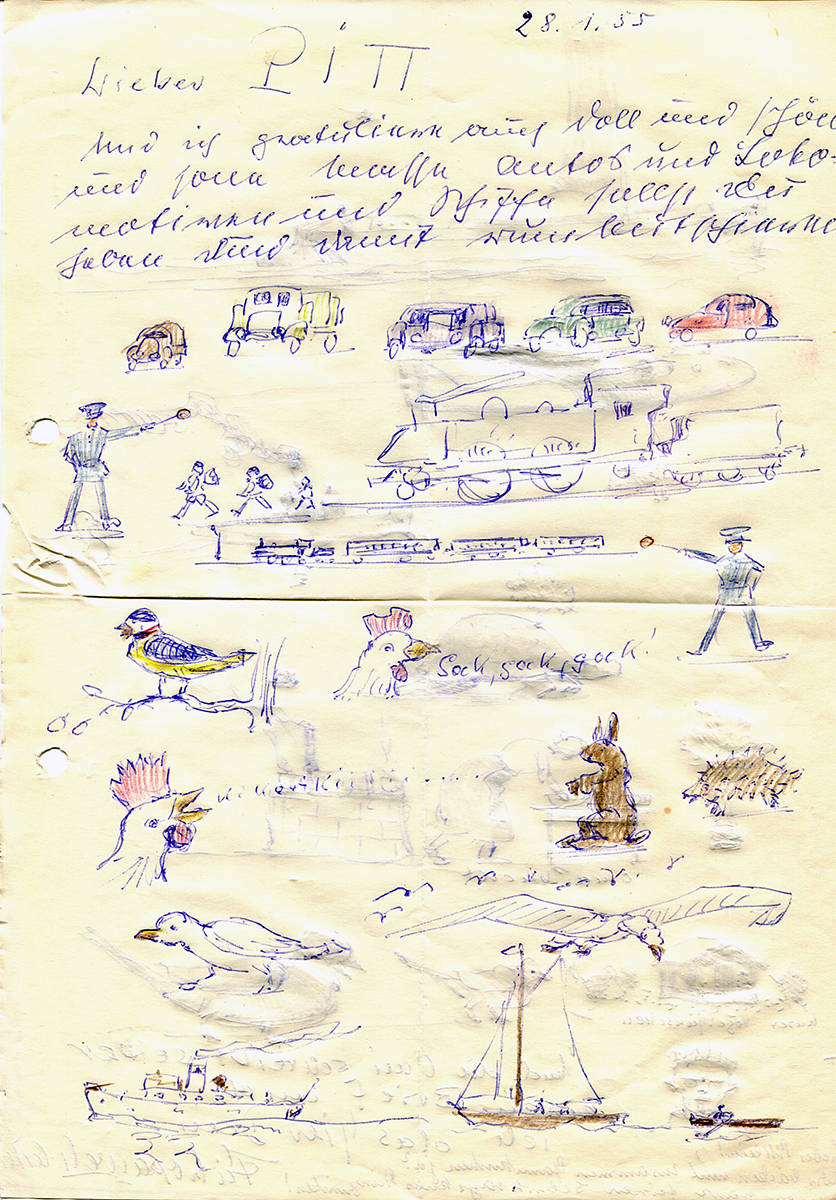 28.1.55
Lieber PITT
Und ich gratuliere auch doll und schön
und sone masse autos und Loko-
motiven und Schiffe sollst Du
haben und damit
Gock, gock, gock!